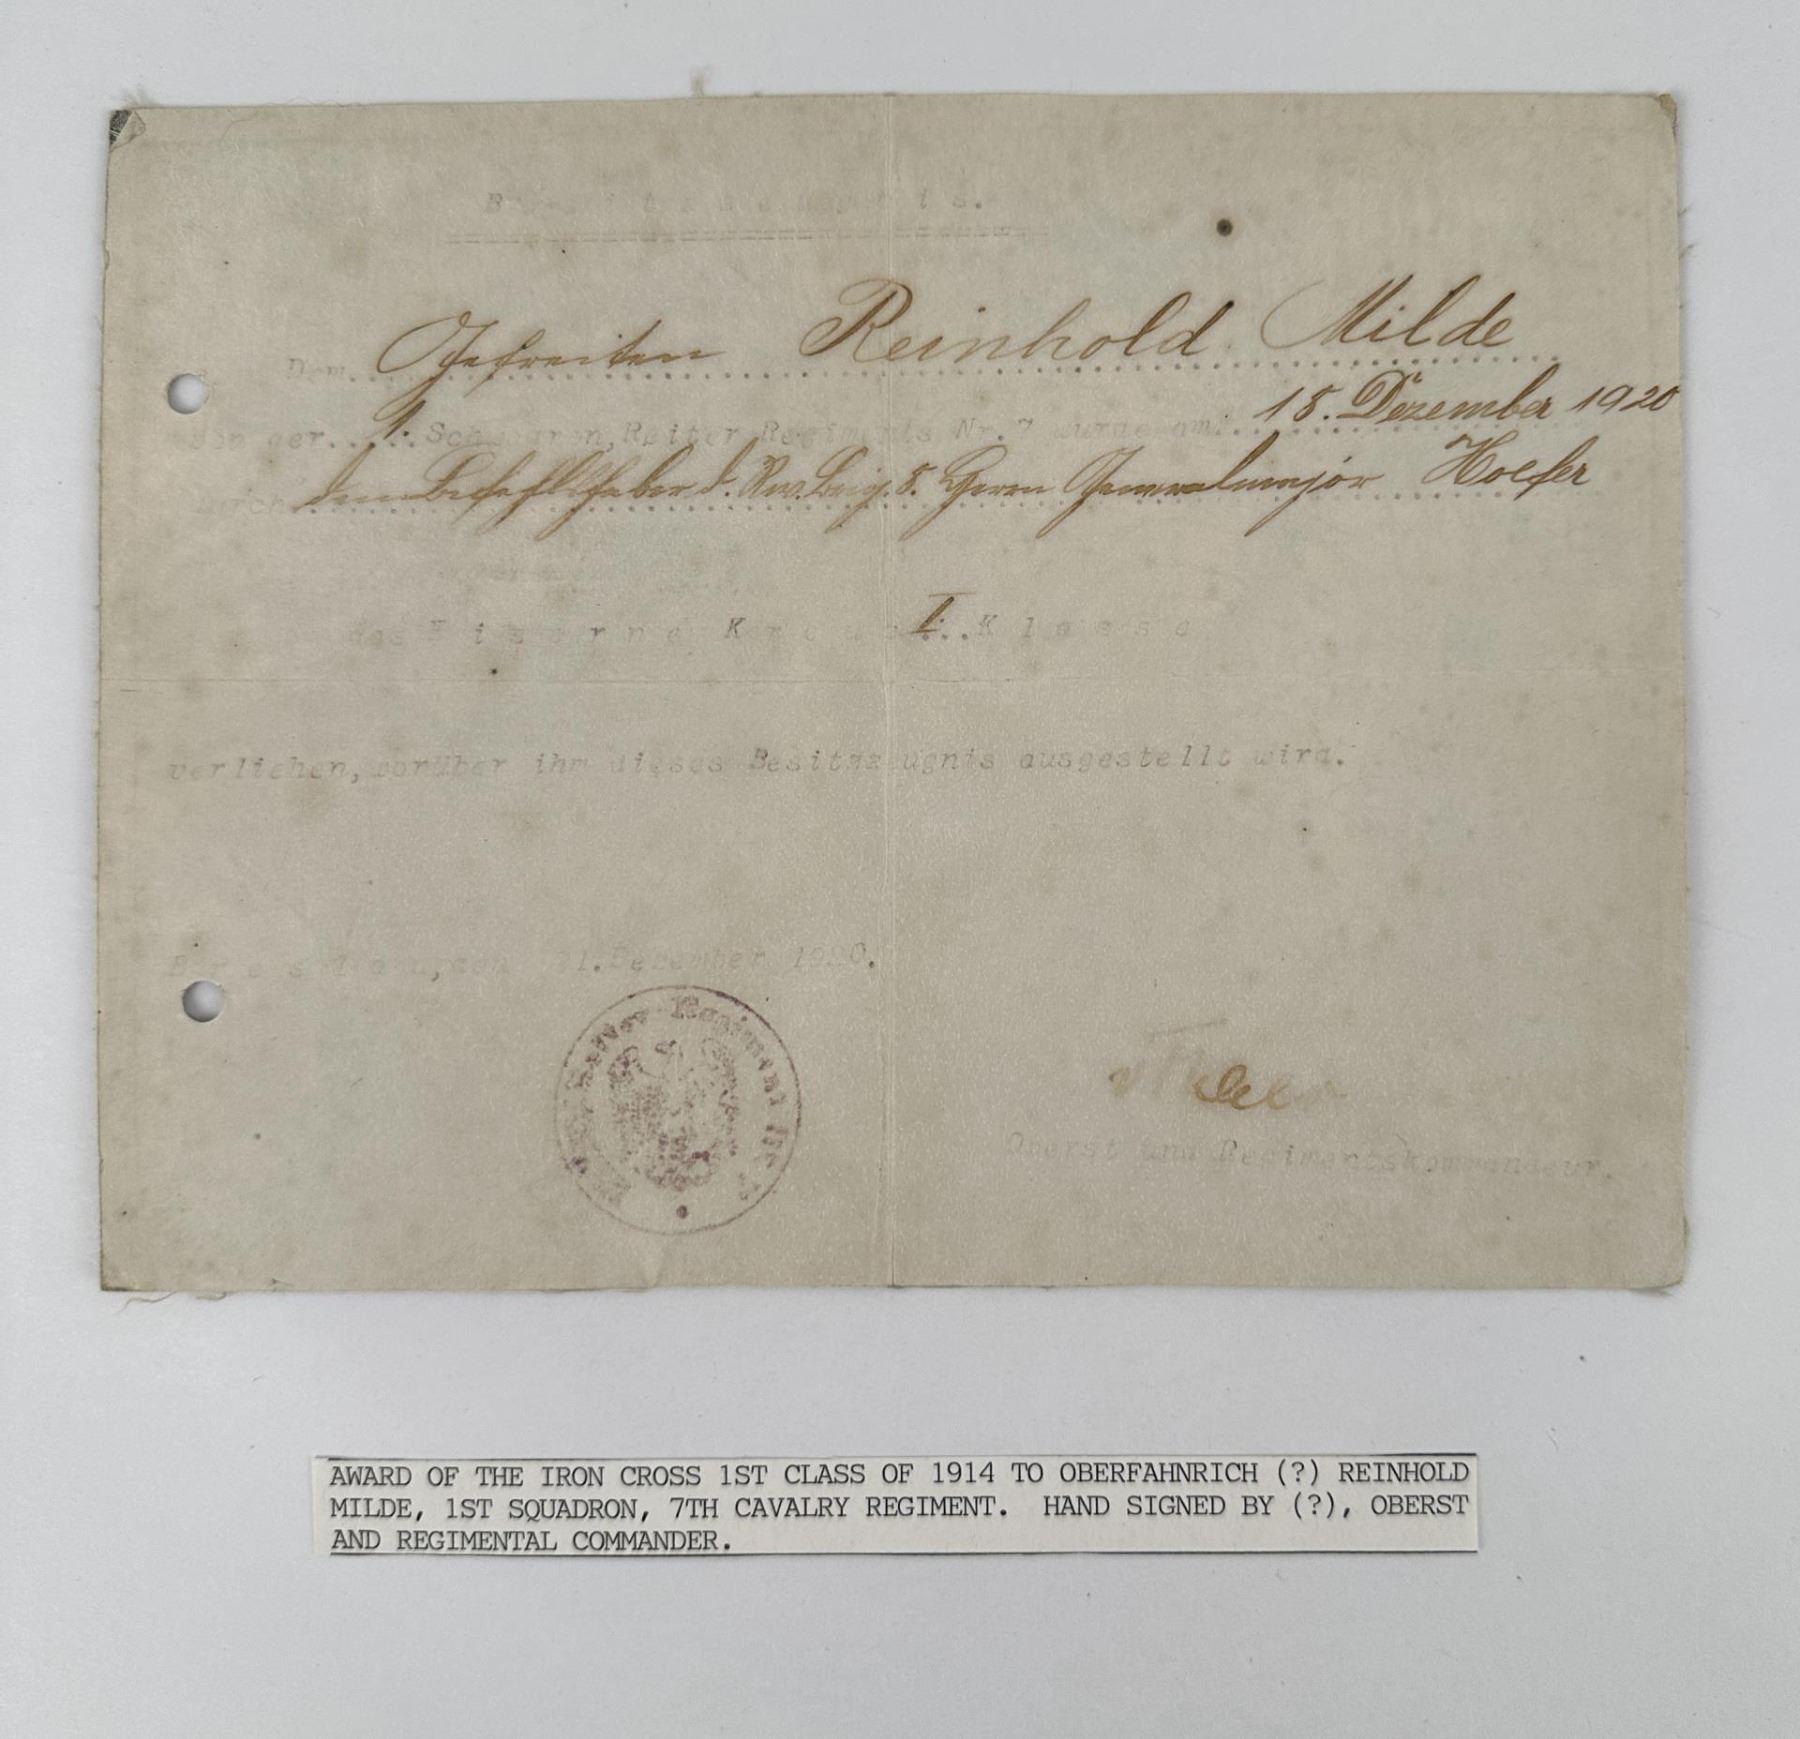 Besitzzeugnis.
Dem Gefreiten Reinhold Milde
von der 1. Schwadron, Reiter Regiments Nr.7 wurde am 18. Dezember 1920
durch den Befehlshaber d. Rw. Brig. 8. Herrn Generalmajor Hoefer
das Eiserne Kreuz I. Klasse
verliehen, worüber ihm dieses Besitzzeugnis ausgestellt wird.
Breslau, den 21. Dezember 1920.
Reiter Regiment Nr. 7
Oberst und Regimentskommandeur.
AWARD OF THE IRON CROSS 1ST CLASS OF 1914 TO OBERFAHNRICH (?) REINHOLD
MILDE, 1ST SQUADRON, 7TH CAVALRY REGIMENT. HAND SIGNED BY (?), OBERST
AND REGIMENTAL COMMANDER.